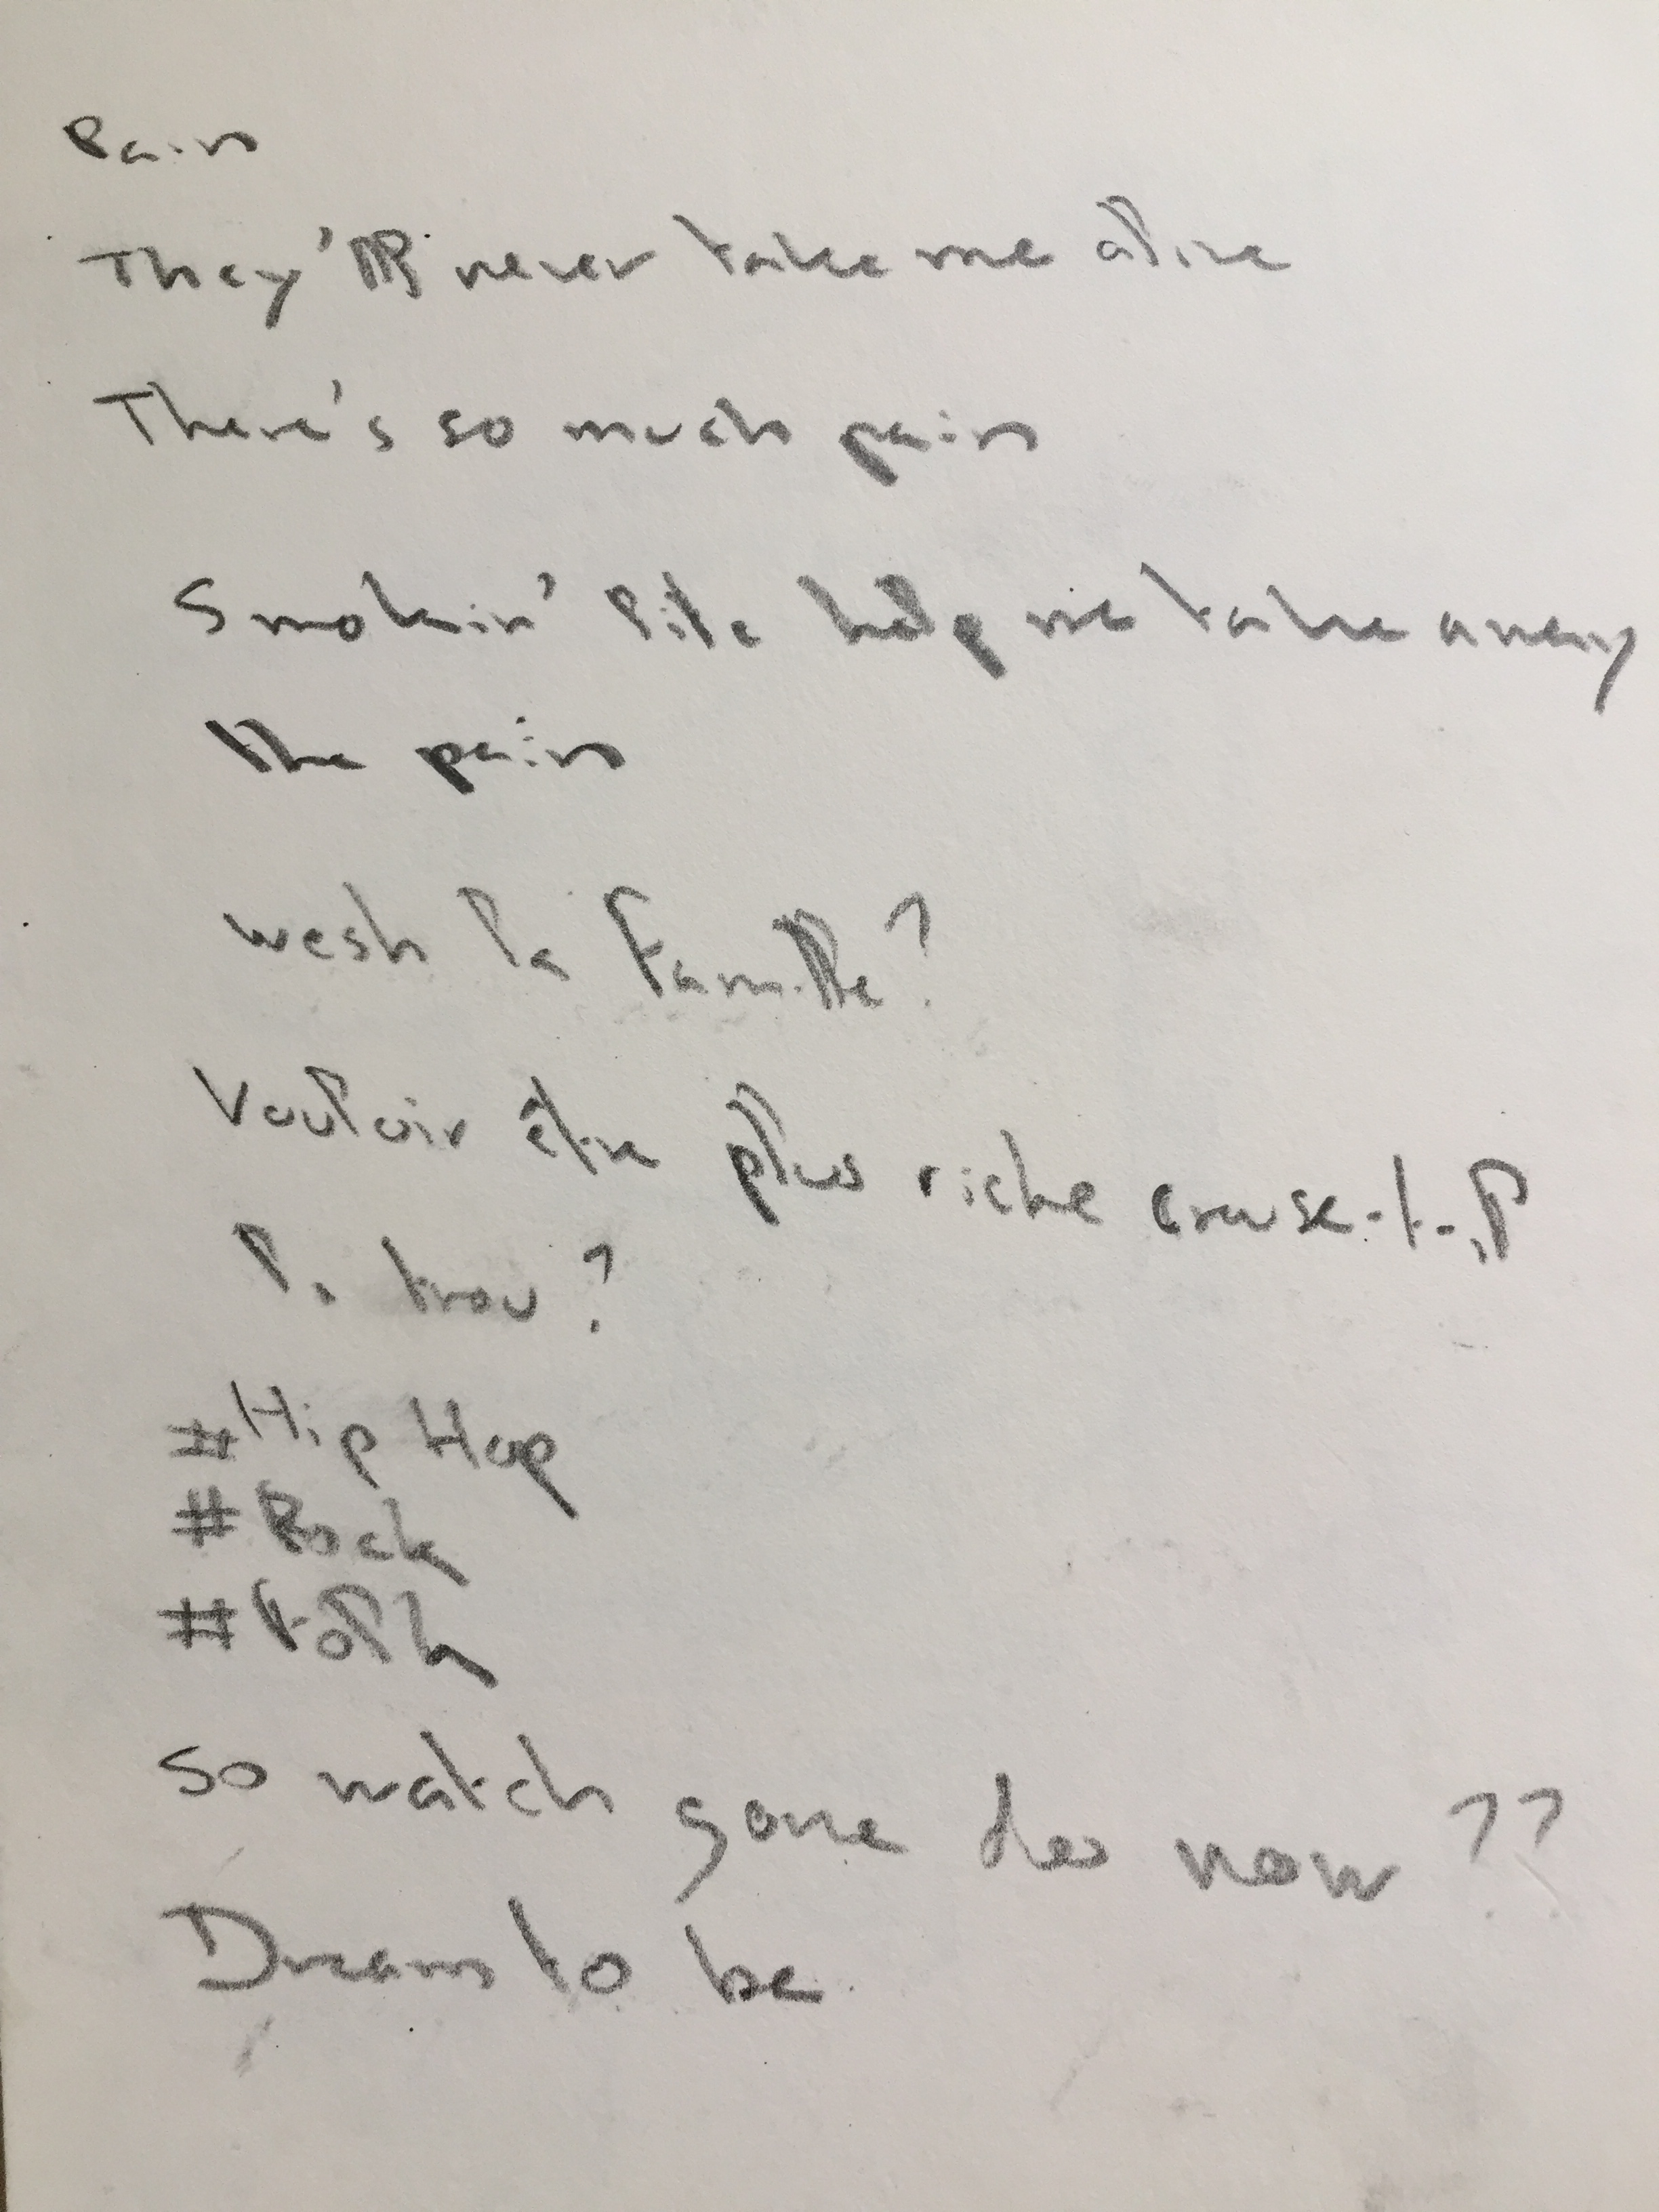 Pain
They'll never take me alive
There's so much pain
Smokin' lite help me take away
the pain
wesh la Famille?
Vouloir être plus riche creuse-t-il
le trou?
#Hip Hop
#Rock
#Folk
So watch gone do now??
Dream to be